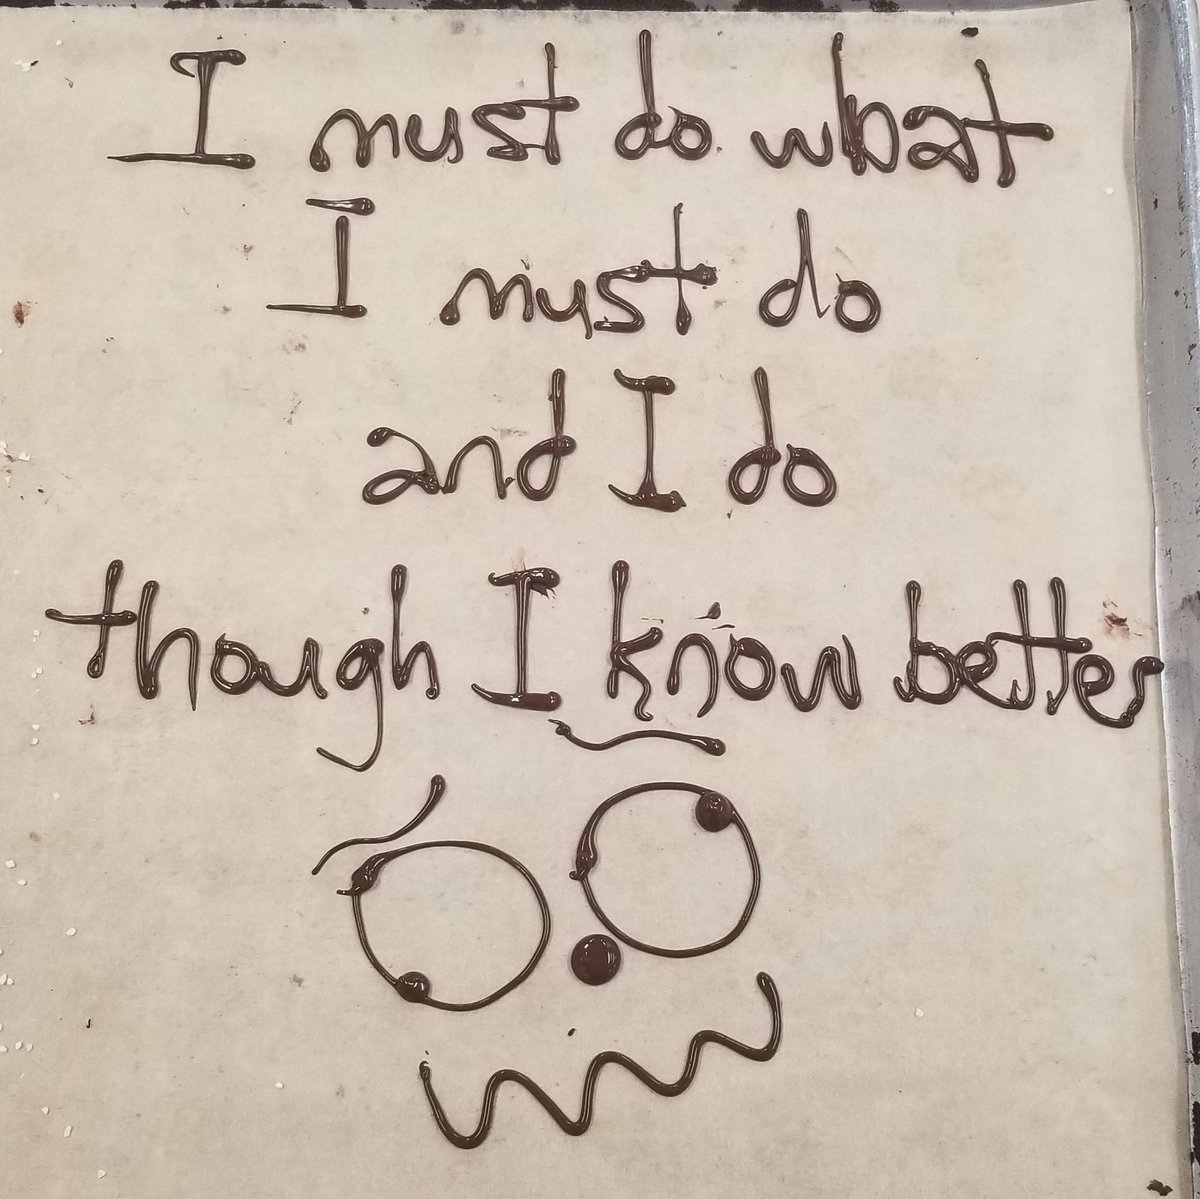 I must do what
I must do
and I do
though I know better